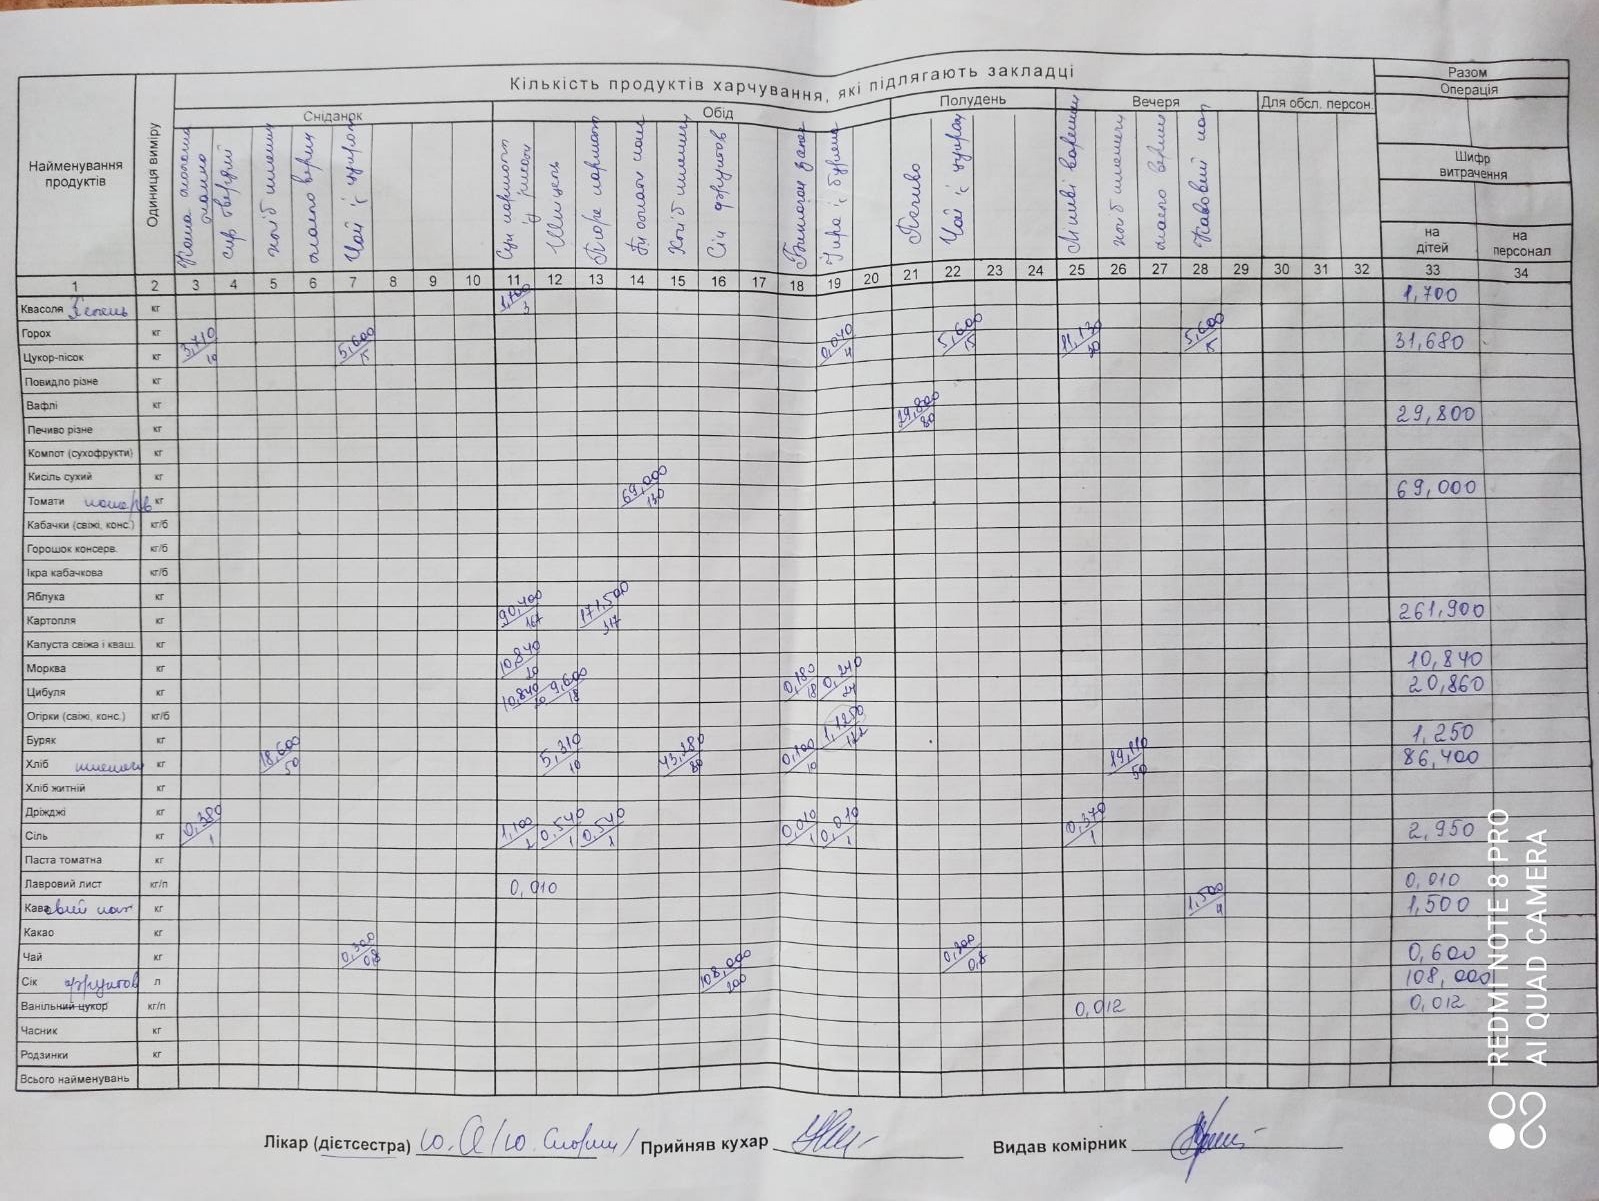 Кількість продуктів харчування, які підлягають закладці
Разом
Операція
Шифр витрачення
на дітей
на персонал
Найменування продуктів
Одиниця виміру
Сніданок
Обід
Полудень
Вечеря
Для обсл. персон.
Каша молочна
сир твердий
хліб пшенич
масло верш
Чай із цукром
Суп
Шніцель
Пюре картоп
Хліб пшенич
Сік фруктов
Ікра із буряка
Печиво
Чай із цукром
Ліниві вареники
хліб пшенич
масло верш
Кавовий нап
1 2 3 4 5 6 7 8 9 10 11 12 13 14 15 16 17 18 19 20 21 22 23 24 25 26 27 28 29 30 31 32 33 34
Квасоля кг 1,700/3 1,700
Горох кг
Цукор-пісок кг 3,710/10 5,600/15 0,040/4 5,600/15 11,130/30 5,600/15 31,680
Повидло різне кг
Вафлі кг
Печиво різне кг 29,800/80 29,800
Компот (сухофрукти) кг
Кисіль сухий кг
Томати консерв кг 69,000/130 69,000
Кабачки (свіжі, конс.) кг/б
Горошок консерв. кг/б
Ікра кабачкова кг/б
Яблука кг
Картопля кг 90,400/167 171,500/317 261,900
Капуста свіжа і кваш. кг
Морква кг 10,840/20 10,840
Цибуля кг 10,840/20 9,600/18 0,180/18 0,240/24 20,860
Огірки (свіжі, конс.) кг/б
Буряк кг 1,250
Хліб пшенич кг 18,600/50 5,310/10 43,280/80 0,100/10 19,110/50 86,400
Хліб житній кг
Дріжджі кг
Сіль кг 0,380/1 1,100/2 0,540/1 0,540/1 0,010/1 0,010/1 0,370/1 2,950
Паста томатна кг
Лавровий лист кг/п 0,010 0,010
Кавовий нап кг 1,500/4 1,500
Какао кг
Чай кг 0,300/0,8 0,300/0,8 0,600
Сік фруктов л 108,000/200 108,000
Ванільний цукор кг/п 0,012 0,012
Часник кг
Родзинки кг
Всього найменувань
Лікар (дієтсестра) Прийняв кухар Видав комірник
REDMI NOTE 8 PRO
AI QUAD CAMERA